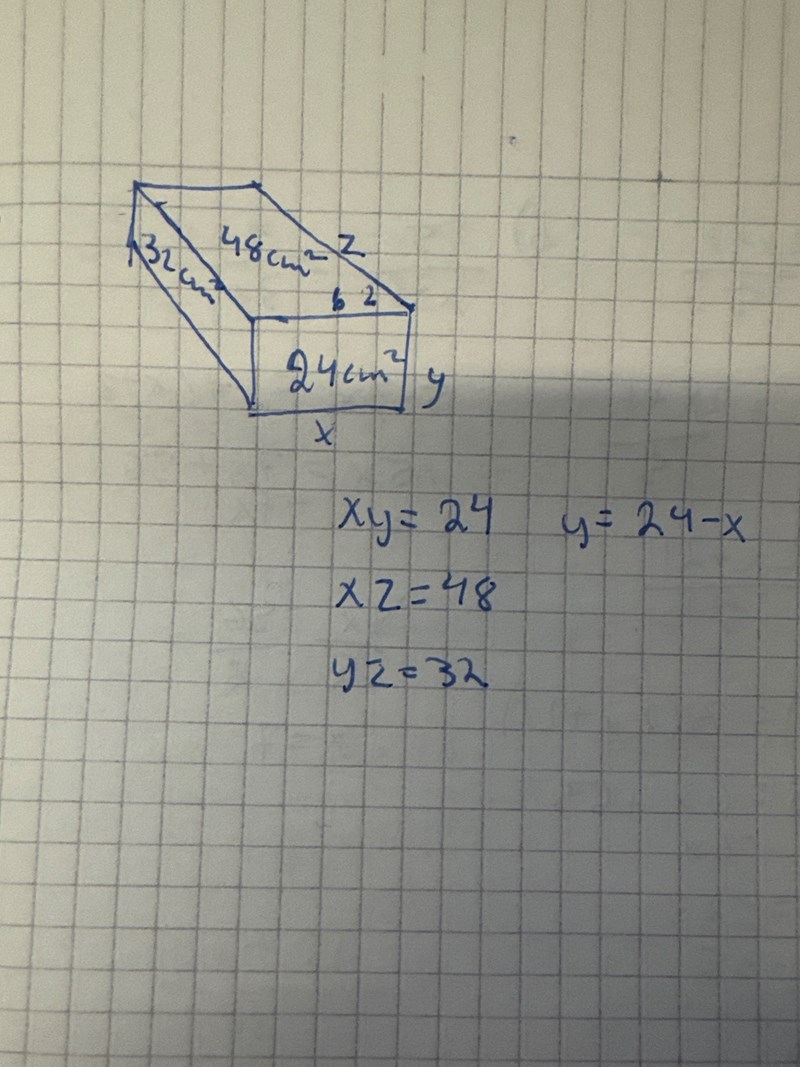 48cm² z
32cm²
6 2
24cm² y
x
xy = 24 y = 24-x
xz = 48
yz = 32